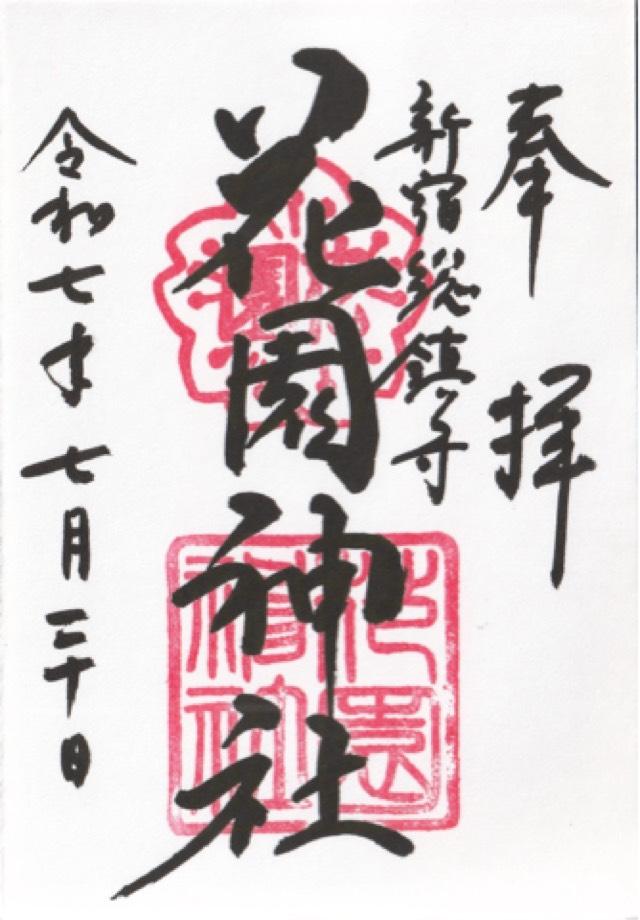 奉拝
新宿総鎮守
花園神社
令和七年七月二十日
花園神社